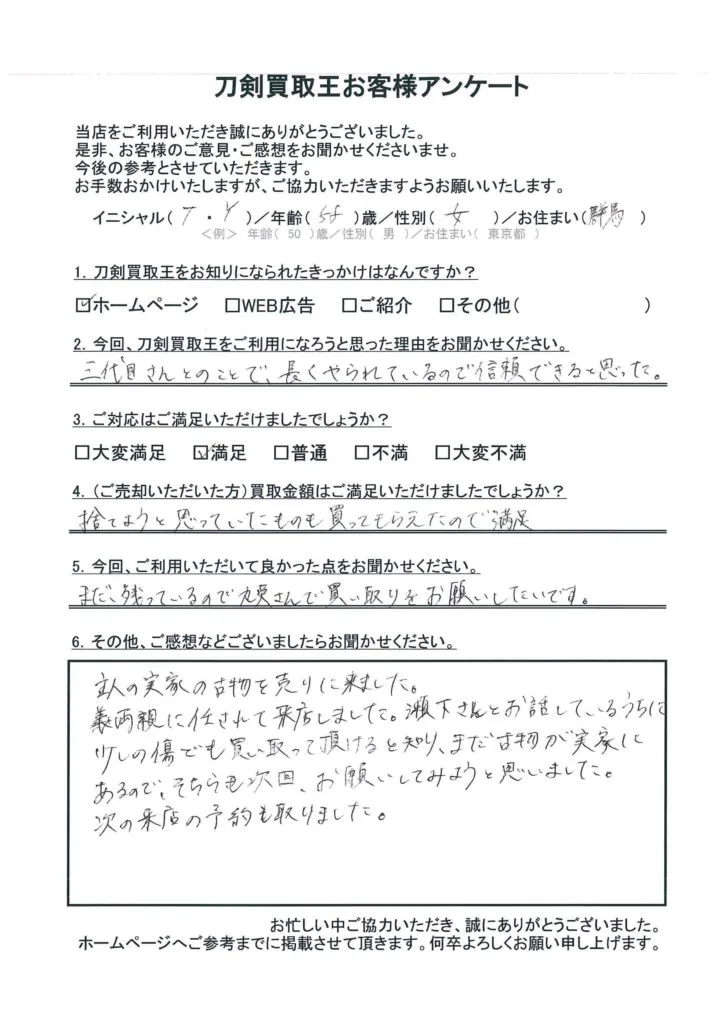 刀剣買取王お客様アンケート
当店をご利用いただき誠にありがとうございました。
是非、お客様のご意見・ご感想をお聞かせくださいませ。
今後の参考とさせていただきます。
お手数おかけいたしますが、ご協力いただきますようお願いいたします。
イニシャル( T ・ Y )/年齢( 58 )歳/性別( 女 )/お住まい( 群馬 )
<例> 年齢( 50 )歳/性別( 男 )/お住まい( 東京都 )
1. 刀剣買取王をお知りになられたきっかけはなんですか?
☑ホームページ □WEB広告 □ご紹介 □その他( )
2. 今回、刀剣買取王をご利用になろうと思った理由をお聞かせください。
三代目さんとのことで、長くやられているので信頼できると思った。
3. ご対応はご満足いただけましたでしょうか?
□大変満足 ☑満足 □普通 □不満 □大変不満
4. (ご売却いただいた方)買取金額はご満足いただけましたでしょうか?
捨てようと思っていたものも買ってもらえたので満足
5. 今回、ご利用いただいて良かった点をお聞かせください。
まだ、残っているので さんで買い取りをお願いしたいです。
6. その他、ご感想などございましたらお聞かせください。
主人の実家の古物を売りに来ました。
義両親に任されて来店しました。瀬下さんとお話しているうちに
少しの傷でも買い取って頂けると知り、まだ古物が実家に
あるので、そちらも次回、お願いしてみようと思いました。
次の来店の予約も取りました。
お忙しい中ご協力いただき、誠にありがとうございました。
ホームページへご参考までに掲載させて頂きます。何卒よろしくお願い申し上げます。